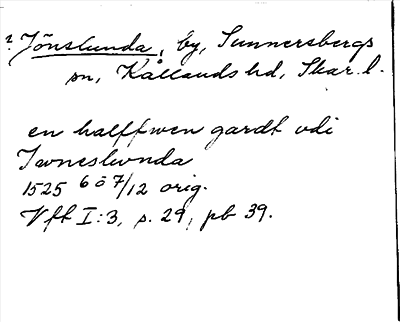 ? Jönslunda, by, Sunnersbergs
sn, Kållands hd, Skar. l.
en halffwen gardt vdi
Iwneslwnda
1525 6 ö 7/12 orig.
Vfh I:3, s. 29, pb 39.